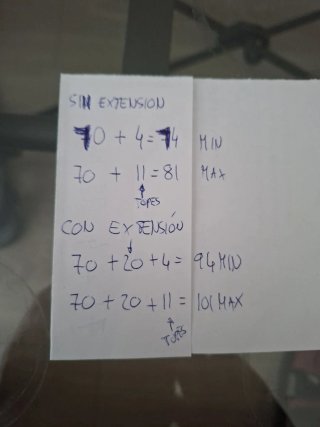 SIN EXTENSION
70 + 4 = 74 MIN
70 + 11 = 81 MAX
TOPES
CON EXTENSIÓN
70 + 20 + 4 = 94 MIN
70 + 20 + 11 = 101 MAX
TOPES